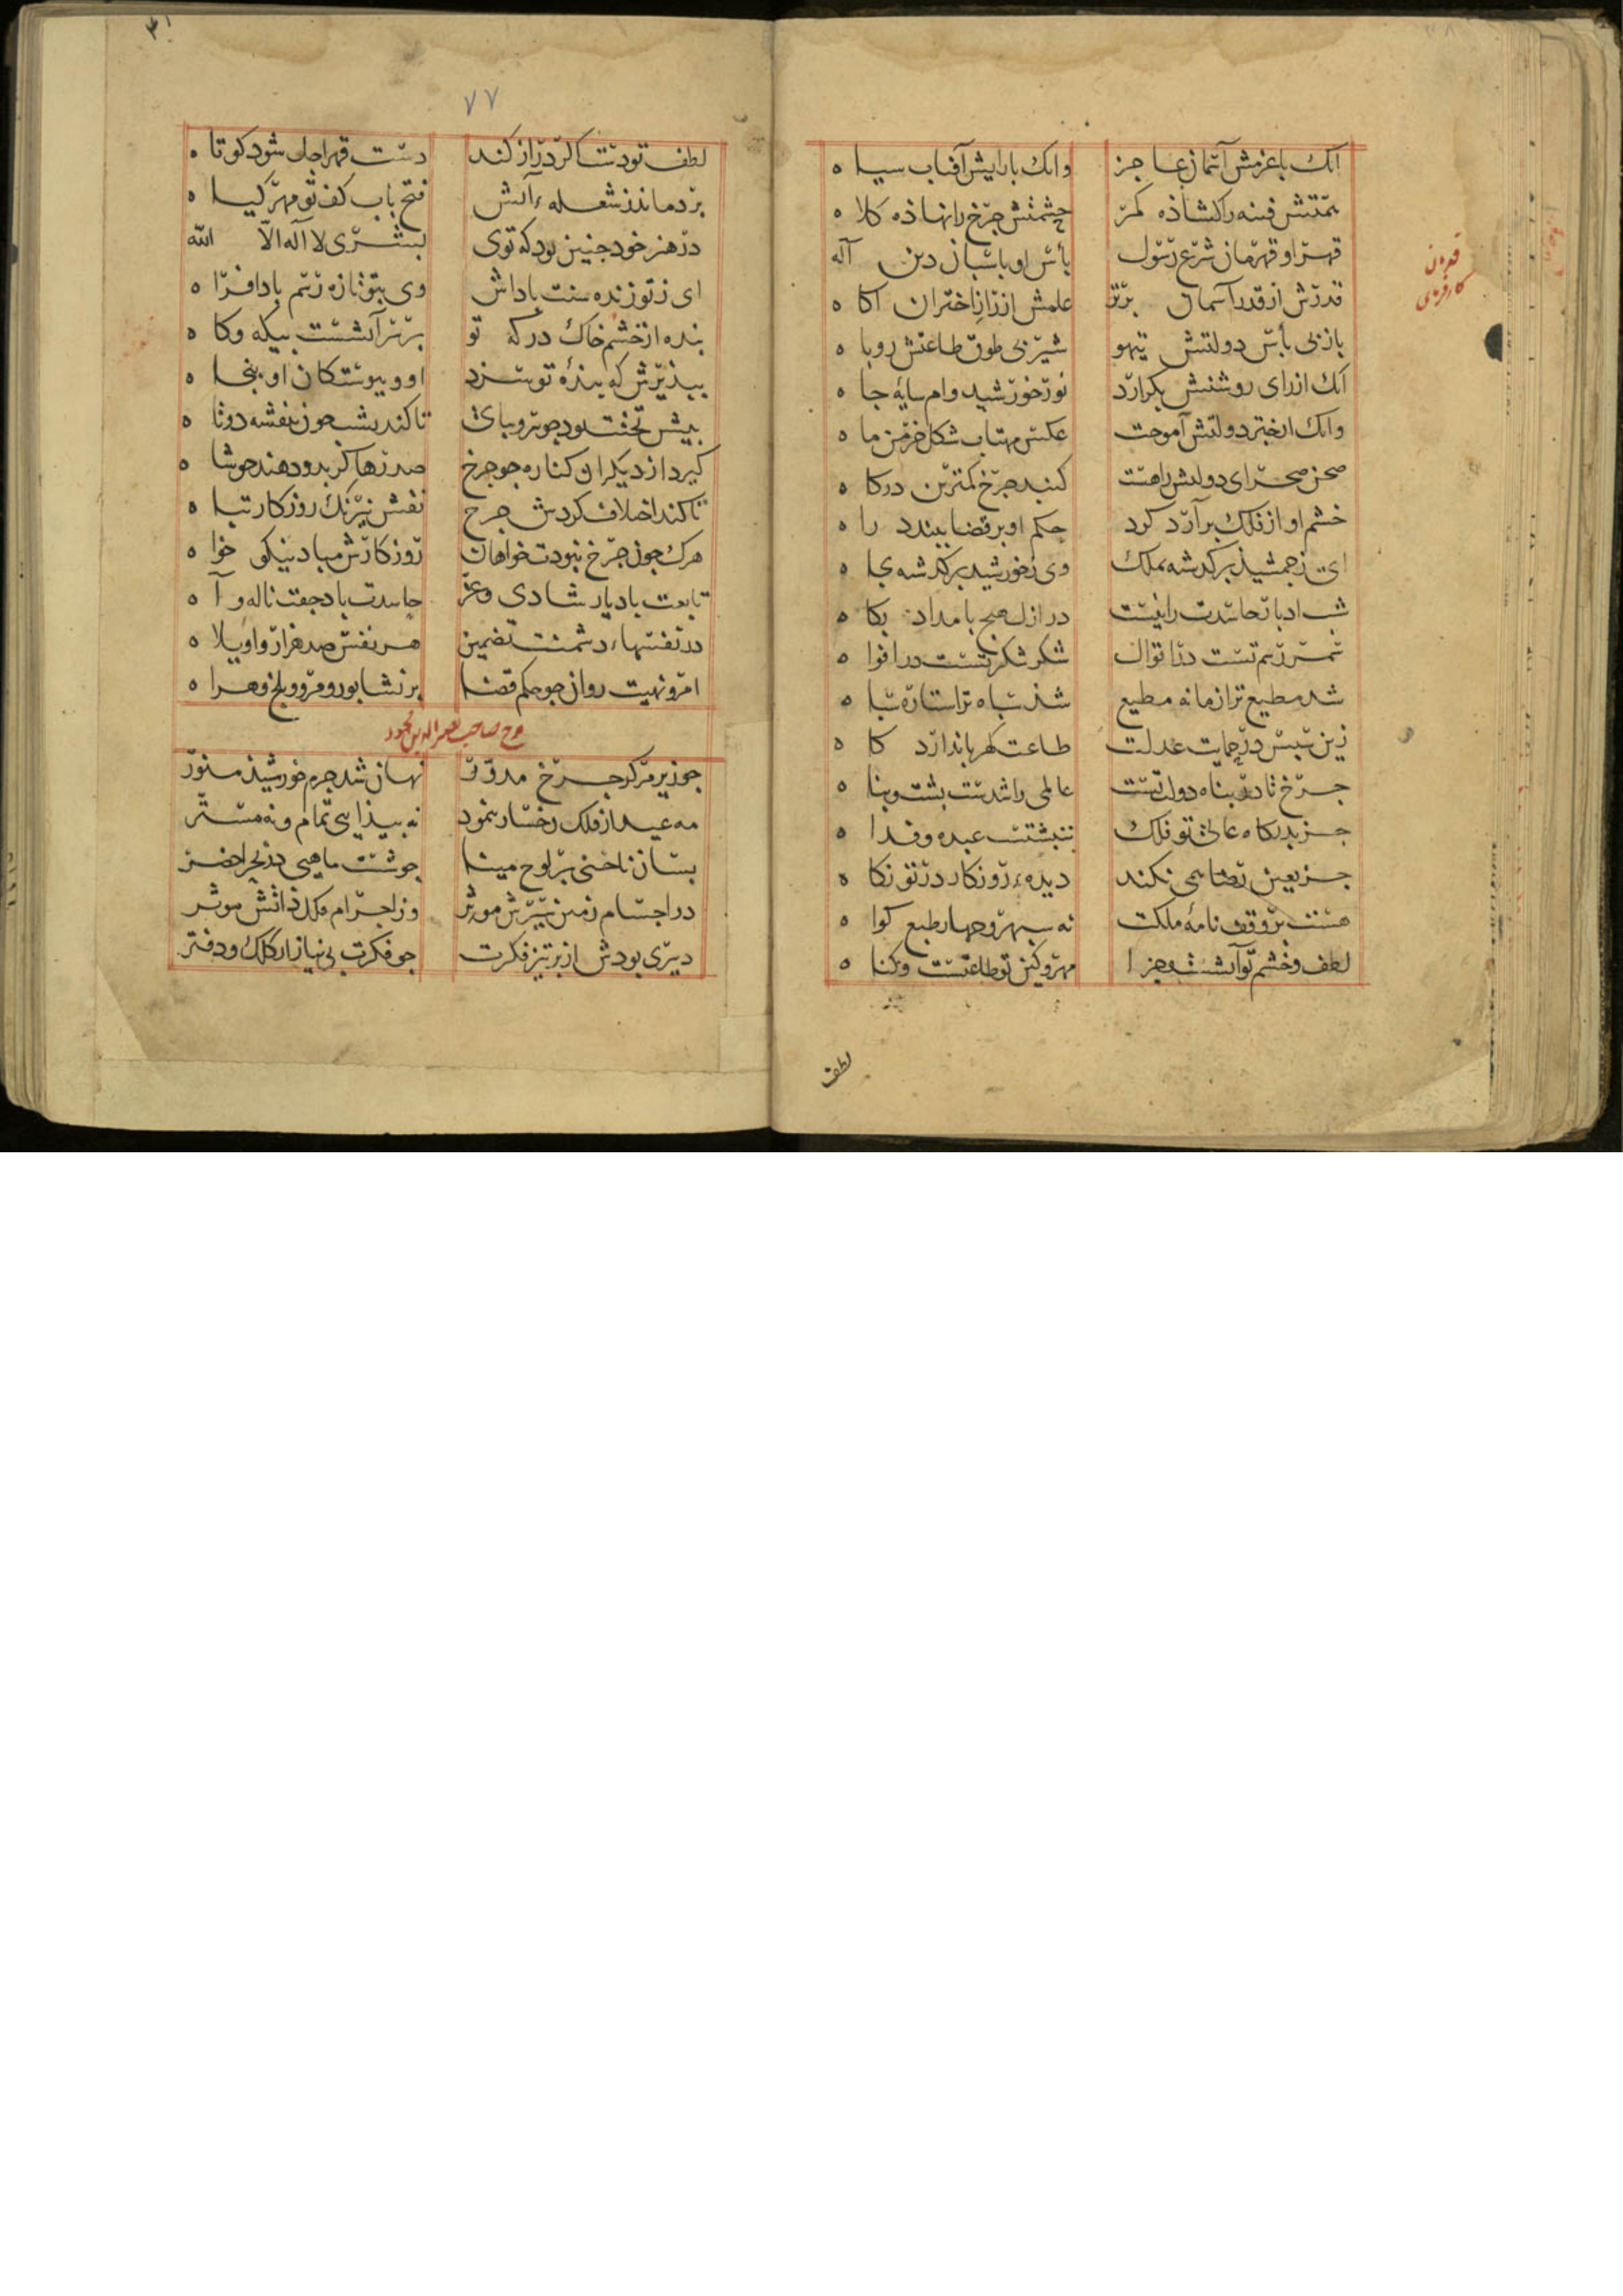 انک با عزمش آسمان عاجز وانک با رایش آفتاب سیاه
همتش فتنه را کشاذه کمر حشمتش جرخ را نهاذه کلاه
قهر او قهرمان شرع رسول بأس او باسبان دین آله
قدرش از قدر آسمان برتر علمش از راز اختران اکاه
باز بی بأس دولتش تیهو شیر بی طوق طاعتش روباه
انک از رای روشنش بکزارد نور خورشید وام سایه جاه
وانک از ختر دولتش آموخت عکس مهتاب شکل خرمن ماه
صحن صحرای دولتش راهست کنبد جرخ کمترین درکاه
خشم او از فلک برآرد کرد حکم او بر قضا ببندد راه
ای ز جمشید برکذشته بملک وی ز خورشید برکذشته بجاه
شب ادبار حاسدت رانیست در ازل صبح بامداد بکاه
ثمر رزم تست در اتوان شکر شکر تست در افواه
شد مطیع ترا زمانه مطیع شذ سباه ترا ستاره سباه
زین سبس در حمایت عدلت طاعت کهربا ندارد کاه
جرخ نا در بناه دولت تست عالمی را شدست بشت و بناه
جز بدرکاه عالی تو فلک ننبشتست عبده و فداه
جز بعین رضا همی نکند دیده روزکار در تو نکاه
هست بر وقف نامه ملکت نه سبهر و جهار طبع کواه
لطف و خشم تو آتشست و هزا مهر و کین تو طاعتست و کناه
لطف
۷۷
لطف تو دست اکر دراز کند دست قهر اجل شود کوتاه
بر دماند ز شعله آتش فتح باب کف تو مهر کیاه
در هنر خود جنین بود که توی لبشری لا اله الا الله
ای ز تو زنده سنت باداش وی بتو تازه رسم باد افراه
بنده از خشم خاک درکه تو برتر آتشست بیکه و کاه
ببذیرش که بنده تو سزد او و بیوستکان او بنجاه
بیش تختت بود جو سرو ببای تا کند بشت جون بنفشه دوتاه
کیرد از دیکران کناره جو جرخ صدرها کر بدو دهند جو شاه
تا کند اختلاف کردش جرخ نقش نیرنک روزکار تباه
هرک جون جرخ نبودت خواهان روزکارش مباد نیکو خواه
تابعت باد یار شادی و عز حاسدت باد جفت ناله و آه
در نفسهاء دشمنت تضمین هر نفس صد هزار واویلاه
امر و نهیت روان جو حکم قضا بر نشابور و مرو و بلخ و هراه
مدح صاحب نصر الدین محمود
جو زیر مرکز جرخ مدور نهان شد جرم خورشیذ منور
مه عید از فلک رخسار بنمود نه بیذایی تمام و نه مستر
بسان ناخنی بر لوح مینا جو شست ماهیی در بحر اخضر
در اجسام زمین سیرش موثر وز اجرام فلک ذاتش موثر
دبیری بودش از برتیز فکرت جو فکرت بی نیاز از کلک و دفتر